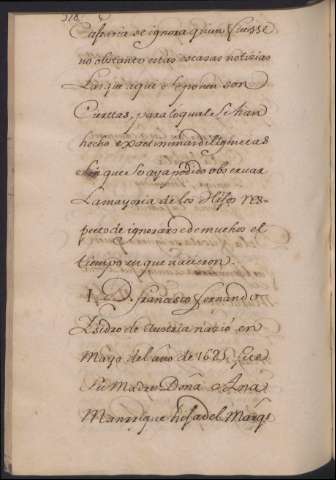 318.
Castaria se ignora quien fuisse
no obstante estas escasas noticias
Las que aqui se ponen son
Ciertas, para lo qual se han
hecho exsaminar diligencias
sin que se aya podido observar
La mayoria de los Hijos res-
pecto de ignorarse de muchos el
tiempo en que nacieron.
1 D. francisco fernando
Isidro de Austria nació en
Mayo del año de 1625 fue
su Madre Doña Ana
Manrique hija del Marqs